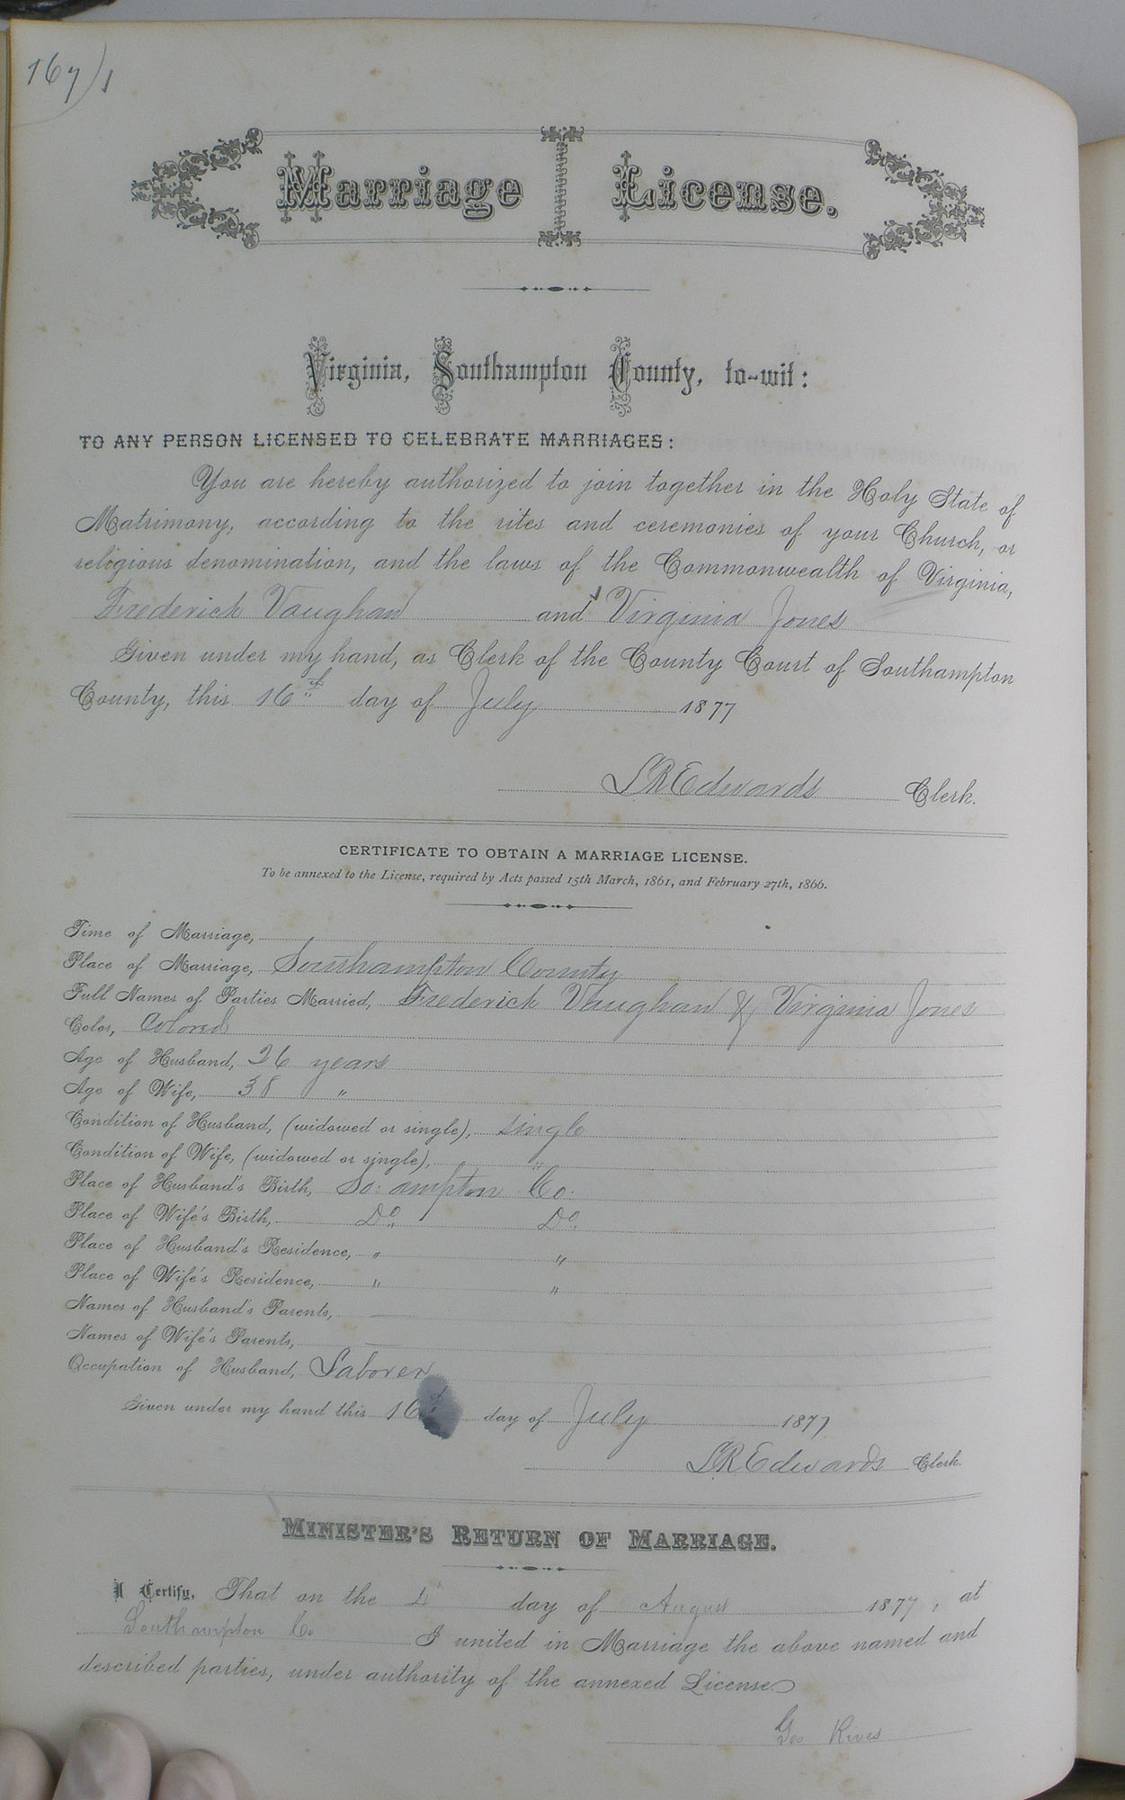 167)1
Marriage License.
Virginia, Southampton County, to-wit:
TO ANY PERSON LICENSED TO CELEBRATE MARRIAGES:
You are hereby authorized to join together in the Holy State of
Matrimony, according to the rites and ceremonies of your Church, or
religious denomination, and the laws of the Commonwealth of Virginia,
Frederick Vaughan and Virginia Jones
Given under my hand, as Clerk of the County Court of Southampton
County, this 16th day of July 1877
LREdwards Clerk.
CERTIFICATE TO OBTAIN A MARRIAGE LICENSE.
To be annexed to the License, required by Acts passed 15th March, 1861, and February 27th, 1866.
Time of Marriage,
Place of Marriage, Southampton County
Full Names of Parties Married, Frederick Vaughan & Virginia Jones
Color, Colored
Age of Husband, 36 years
Age of Wife, 38 "
Condition of Husband, (widowed or single), single
Condition of Wife, (widowed or single), "
Place of Husband's Birth, So: ampton Co.
Place of Wife's Birth, Do. Do.
Place of Husband's Residence, " "
Place of Wife's Residence, " "
Names of Husband's Parents,
Names of Wife's Parents,
Occupation of Husband, Laborer
Given under my hand this 16th day of July 1877
LREdwards Clerk.
MINISTER'S RETURN OF MARRIAGE.
I Certify, That on the day of August 1877, at
Southampton Co. I united in Marriage the above named and
described parties, under authority of the annexed License.
Geo Rives